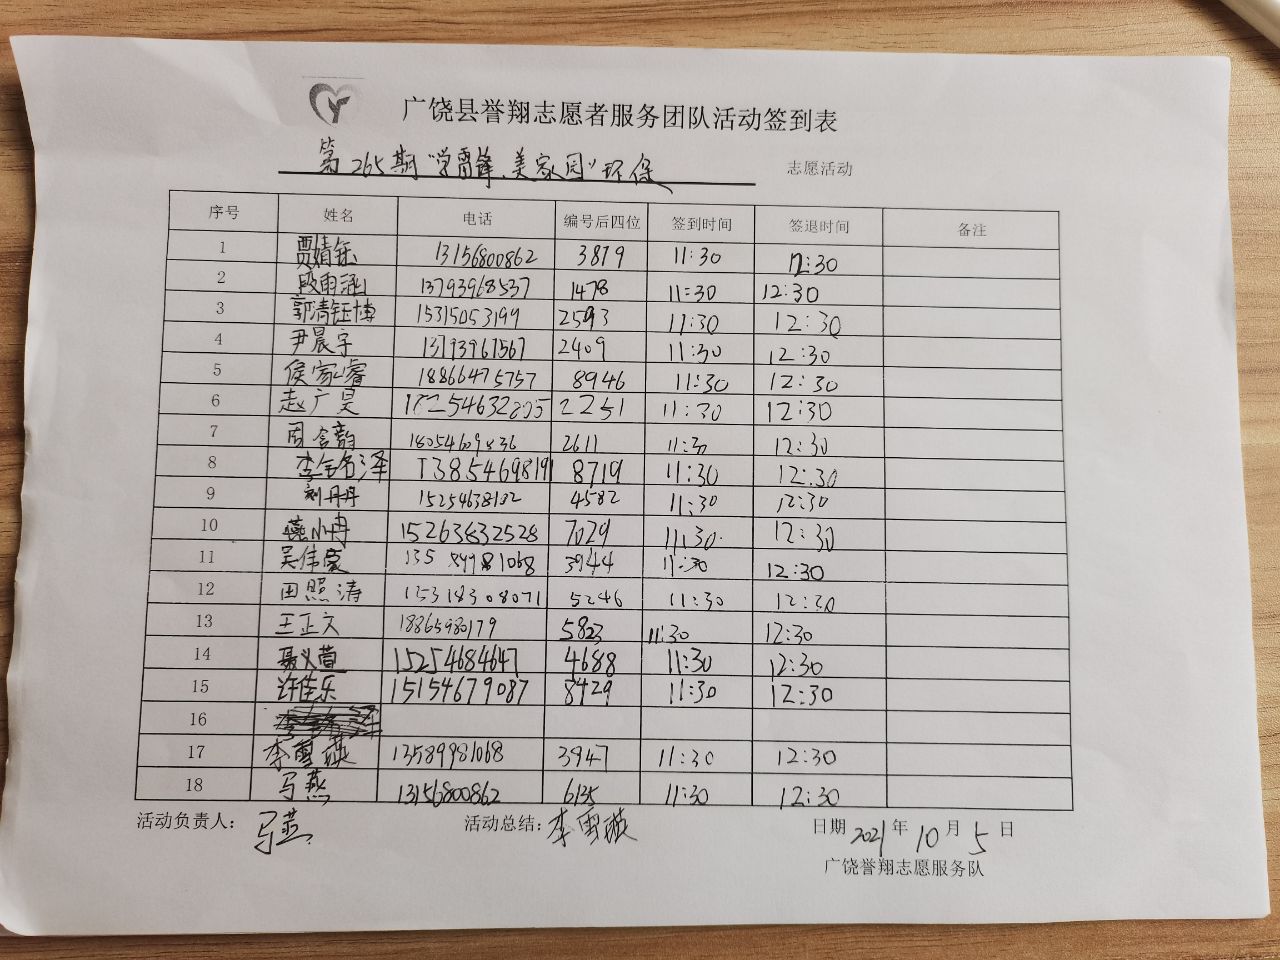 广饶县誉翔志愿者服务团队活动签到表
第265期"学雷锋、美家园"环保 志愿活动
序号 姓名 电话 编号后四位 签到时间 签退时间 备注
1 贾婧钰 13156800862 3879 11:30 12:30
2 段雨涵 13793968537 1478 11:30 12:30
3 郭清钰博 15315053199 2593 11:30 12:30
4 尹晨宇 13793961567 2409 11:30 12:30
5 侯家睿 18866475757 8946 11:30 12:30
6 赵广昊 2251 11:30 12:30
7 周含韵 18054609836 2611 11:30 12:30
8 李铭泽 13854698191 8719 11:30 12:30
9 刘丹丹 15254638132 4582 11:30 12:30
10 燕小冉 15263832528 7029 11:30 12:30
11 吴伟豪 3944 11:30 12:30
12 田照涛 13318308071 5246 11:30 12:30
13 王正文 18865980179 5823 11:30 12:30
14 聂义萱 15254684647 4688 11:30 12:30
15 许佳乐 15154679087 8429 11:30 12:30
16
17 李雪薇 13589981068 3947 11:30 12:30
18 马燕 13156800862 6135 11:30 12:30
活动负责人: 马燕 活动总结: 李雪薇 日期 2021 年 10 月 5 日
广饶誉翔志愿服务队